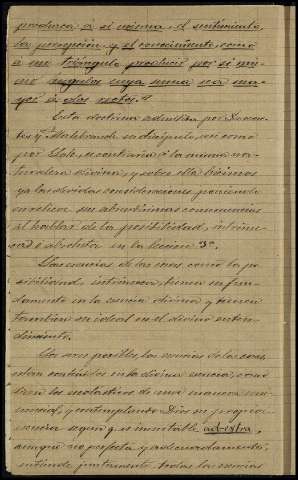 produzca á sí misma, el sentimiento,
la percepción, y el conocimiento, como
á un triángulo producir por sí mis-
mo ángulos cuya suma sea ma-
yor á dos rectos."
Esta doctrina admitida por Descar-
tes y Malebranche su discípulo, así como
por Locke, es contraria á la misma na-
turaleza divina, y sobre ella hicimos
ya las debidas consideraciones poniendo
de relieve sus absurdísimas consecuencias
al hablar de la posibilidad, intrínse-
ca ó absoluta en la lección 3ª.
Las esencias de las cosas, como la po-
sibilidad intrínseca, tienen su fun-
damento en la esencia divina y tienen
también su ideal en el divino enten-
dimiento.
las esencias de las cosas,
están contenidas en la divina esencia, como
dicen los escolásticos de una manera
y contemplando Dios su propia
esencia según q. es imitable ad-extra,
aunque no perfecta y adecuadamente,
entiende juntamente todas las esencias